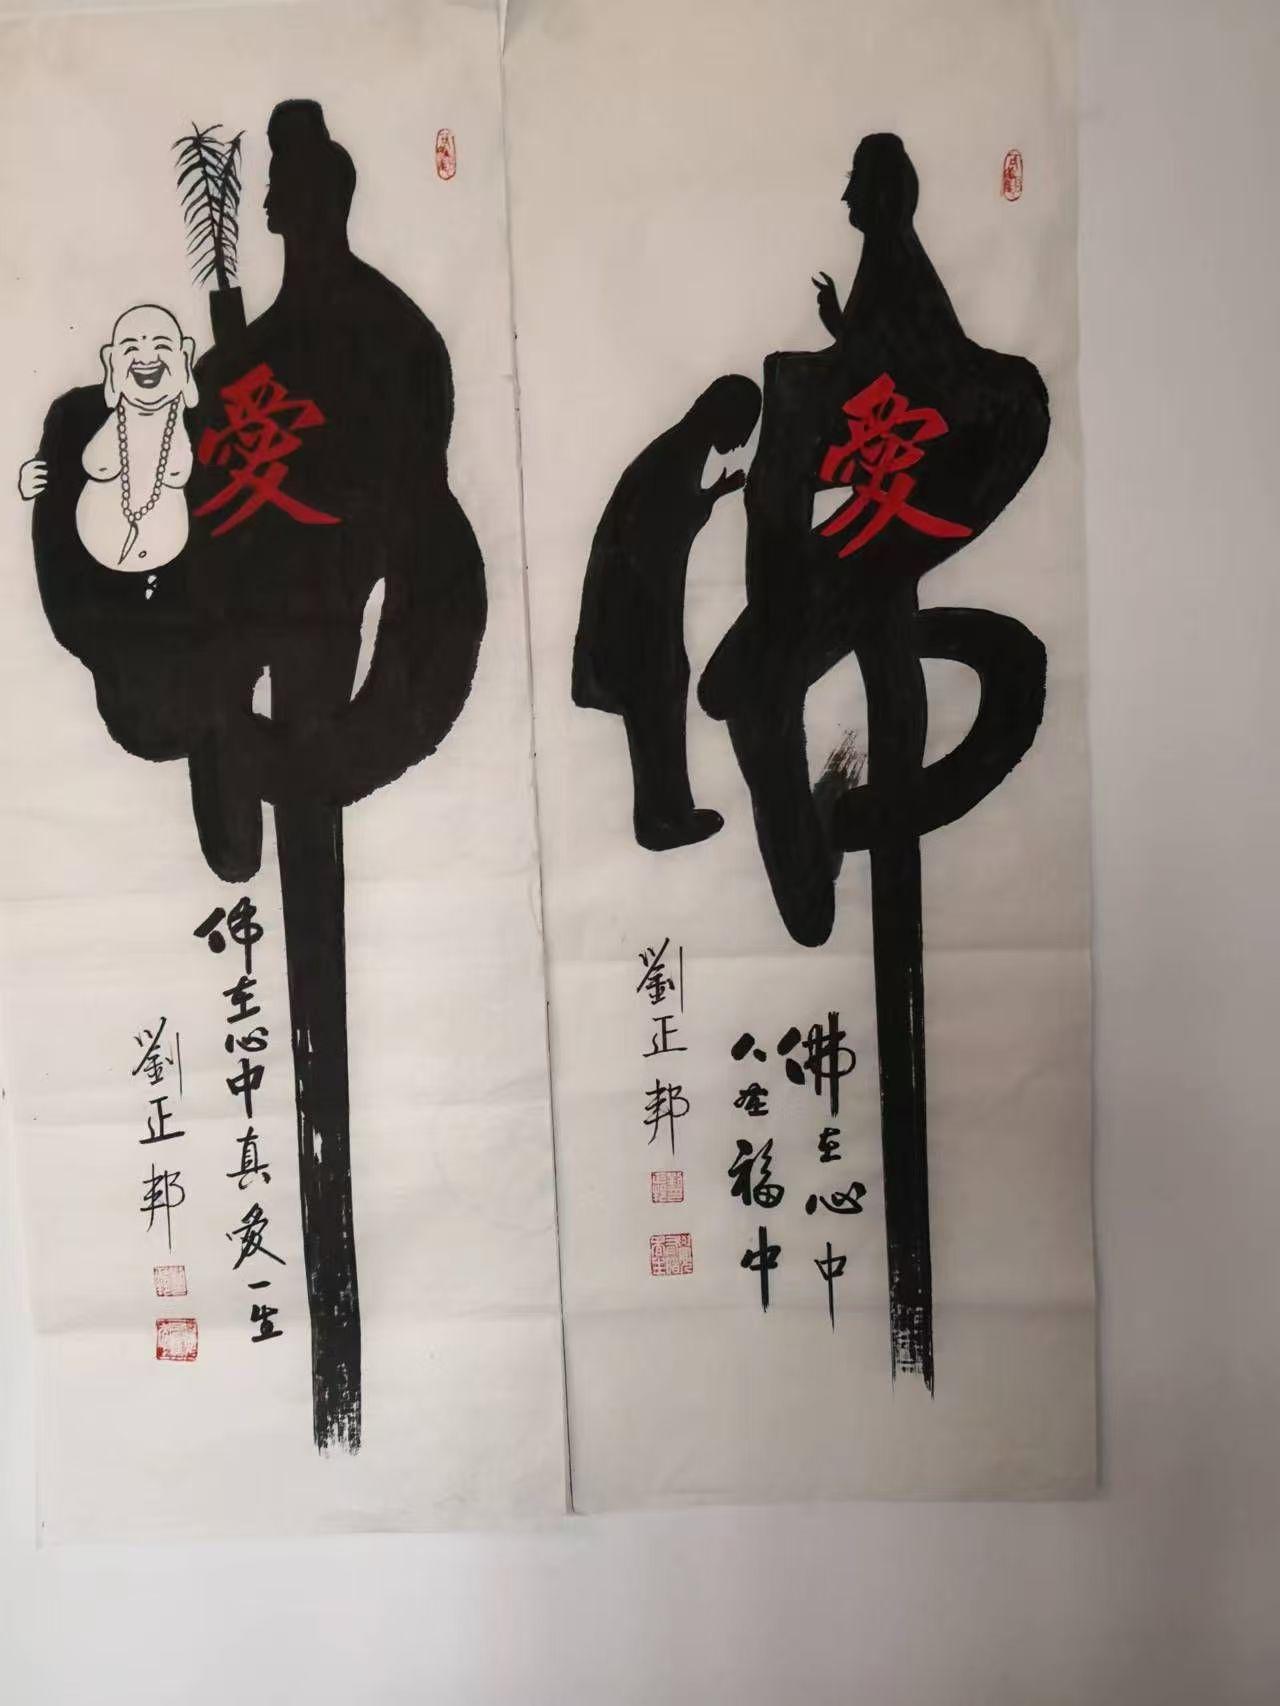 愛
佛在心中真愛一生
劉正邦
愛
佛在心中
人在福中
劉正邦